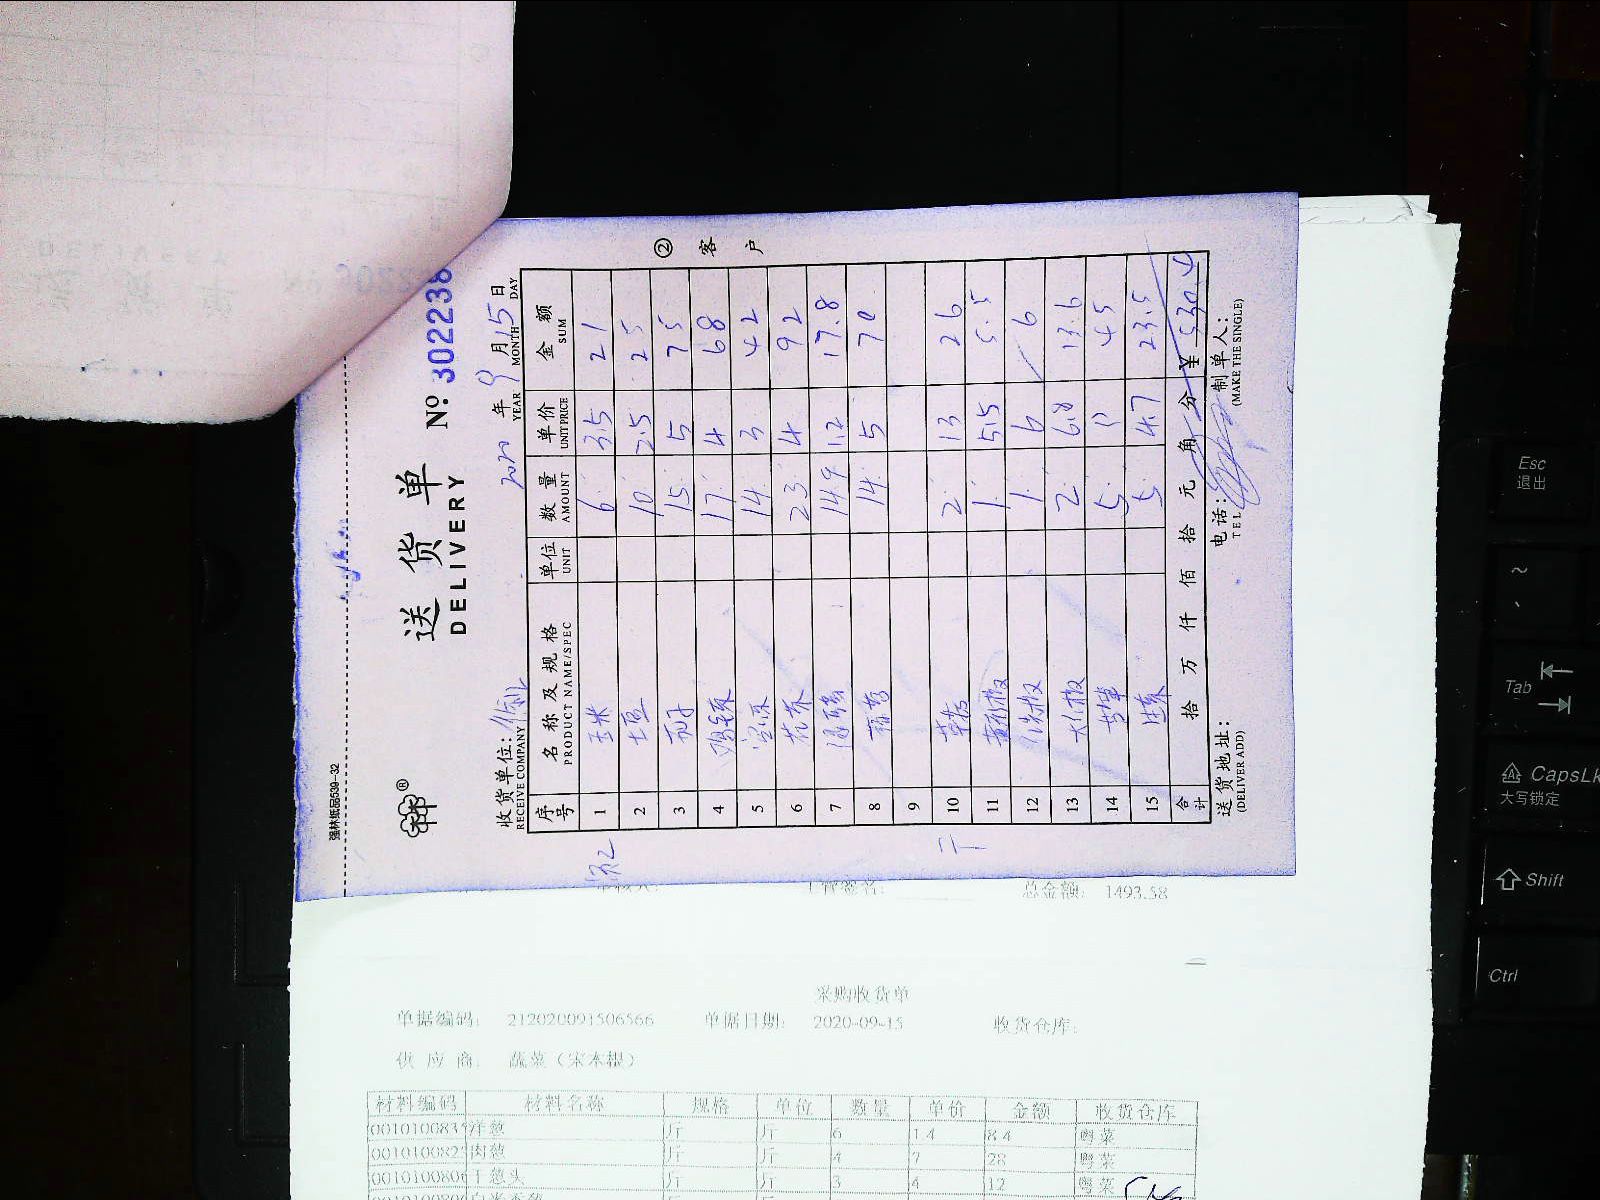 强林纸品539-32
送货单
DELIVERY
№ 302238
2020 年 9 月 15 日
YEAR MONTH DAY
收货单位:
RECEIVE COMPANY
② 客户
序号 名称及规格 单位 数量 单价 金额
PRODUCT NAME/SPEC UNIT AMOUNT UNIT PRICE SUM
1 玉米 6 3.5 21
2 土豆 10 2.5 25
3 15 5 75
4 17 4 68
5 14 3 42
6 花菜 23 4 92
7 14.9 1.2 17.8
8 14 5 70
9
10 2 13 26
11 1 5.5 5.5
12 1 6 6
13 大红椒 2 6.8 13.6
14 5 45
15 5 4.7 23.5
合计 拾 万 仟 佰 拾 元 角 分 ¥ 530.4
送货地址: 电话: 制单人:
(DELIVER ADD) TEL (MAKE THE SINGLE)
总金额: 1493.58
采购收货单
单据编码: 212020091506566 单据日期: 2020-09-15 收货仓库:
供应商: 蔬菜(宋本根)
材料编码 材料名称 规格 单位 数量 单价 金额 收货仓库
洋葱 斤 斤 6 1.4 8.4 粤菜
肉葱 斤 斤 4 7 28 粤菜
干葱头 斤 斤 3 4 12 粤菜
Esc
退出
~
Tab
CapsLk
大写锁定
Shift
Ctrl